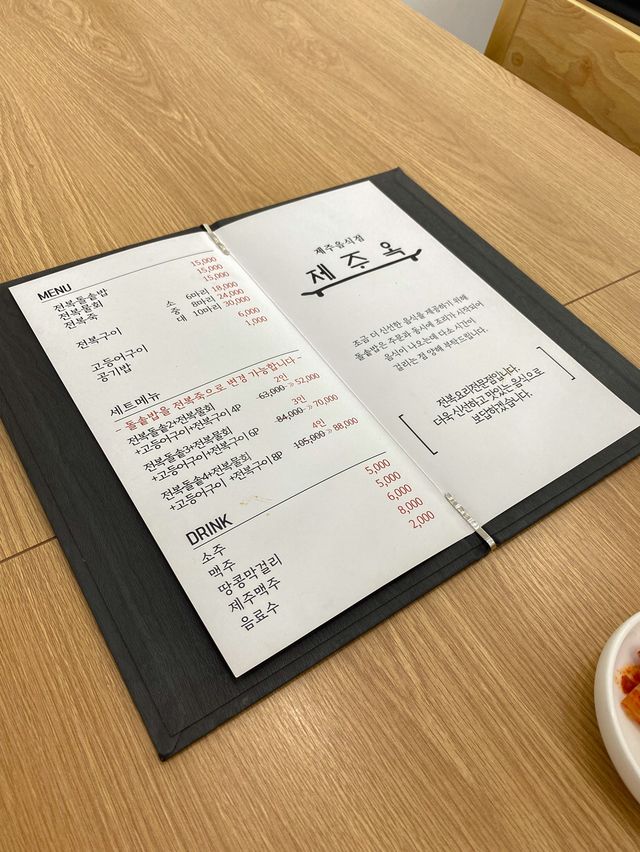 MENU
전복돌솥밥 15,000
전복물회 15,000
전복죽 15,000
소 6마리 18,000
전복구이 중 8마리 24,000
대 10마리 30,000
고등어구이 6,000
공기밥 1,000
세트메뉴
- 돌솥밥을 전복죽으로 변경 가능합니다 -
전복돌솥2+전복물회 2인
+고등어구이+전복구이 4P 63,000->52,000
전복돌솥3+전복물회 3인
+고등어구이+전복구이 6P 84,000->70,000
전복돌솥4+전복물회 4인
+고등어구이 +전복구이 8P 105,000->88,000
DRINK
소주 5,000
맥주 5,000
땅콩막걸리 6,000
제주맥주 8,000
음료수 2,000
제주음식점
제주옥
조금 더 신선한 음식을 제공하기 위해
돌솥밥은 주문과 동시에 조리가 시작되어
음식이 나오는데 다소 시간이
걸리는 점 양해 부탁드립니다.
전복요리전문점입니다.
더욱 신선하고 맛있는 음식으로
보답하겠습니다.